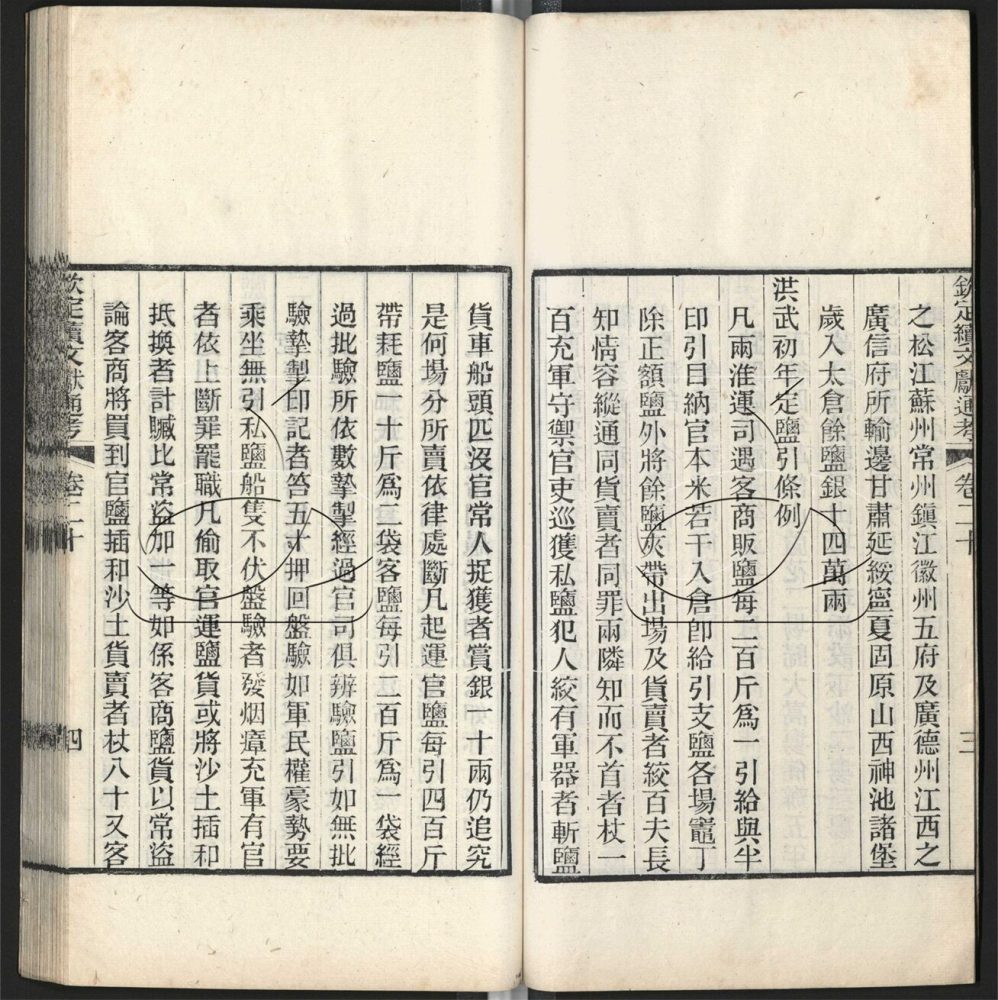 欽定續文獻通考 卷二十 三
之松江蘇州常州鎮江徽州五府及廣德州江西之
廣信府所輸邊甘肅延綏寧夏固原山西神池諸堡
歲入太倉餘鹽銀十四萬兩
洪武初年定鹽引條例
凡兩淮運司遇客商販鹽每二百斤爲一引給與半
印引目納官本米若干入倉卽給引支鹽各場竈丁
除正額鹽外將餘鹽灰帶出場及貨賣者絞百夫長
知情容縱通同貨賣者同罪兩隣知而不首者杖一
百充軍守禦官吏巡獲私鹽犯人絞有軍器者斬鹽
貨車船頭匹沒官常人捉獲者賞銀一十兩仍追究
是何場分所賣依律處斷凡起運官鹽每引四百斤
帶耗鹽一十斤爲二袋客鹽每引二百斤爲一袋經
過批驗所依數摯掣經過官司俱辨驗鹽引如無批
驗摯掣印記者笞五十押回盤驗如軍民權豪勢要
乘坐無引私鹽船隻不伏盤驗者發烟瘴充軍有官
者依上斷罪罷職凡偷取官運鹽貨或將沙土插和
抵換者計贓比常盜加一等如係客商鹽貨以常盜
論客商將買到官鹽插和沙土貨賣者杖八十又客
欽定續文獻通考 卷二十 四